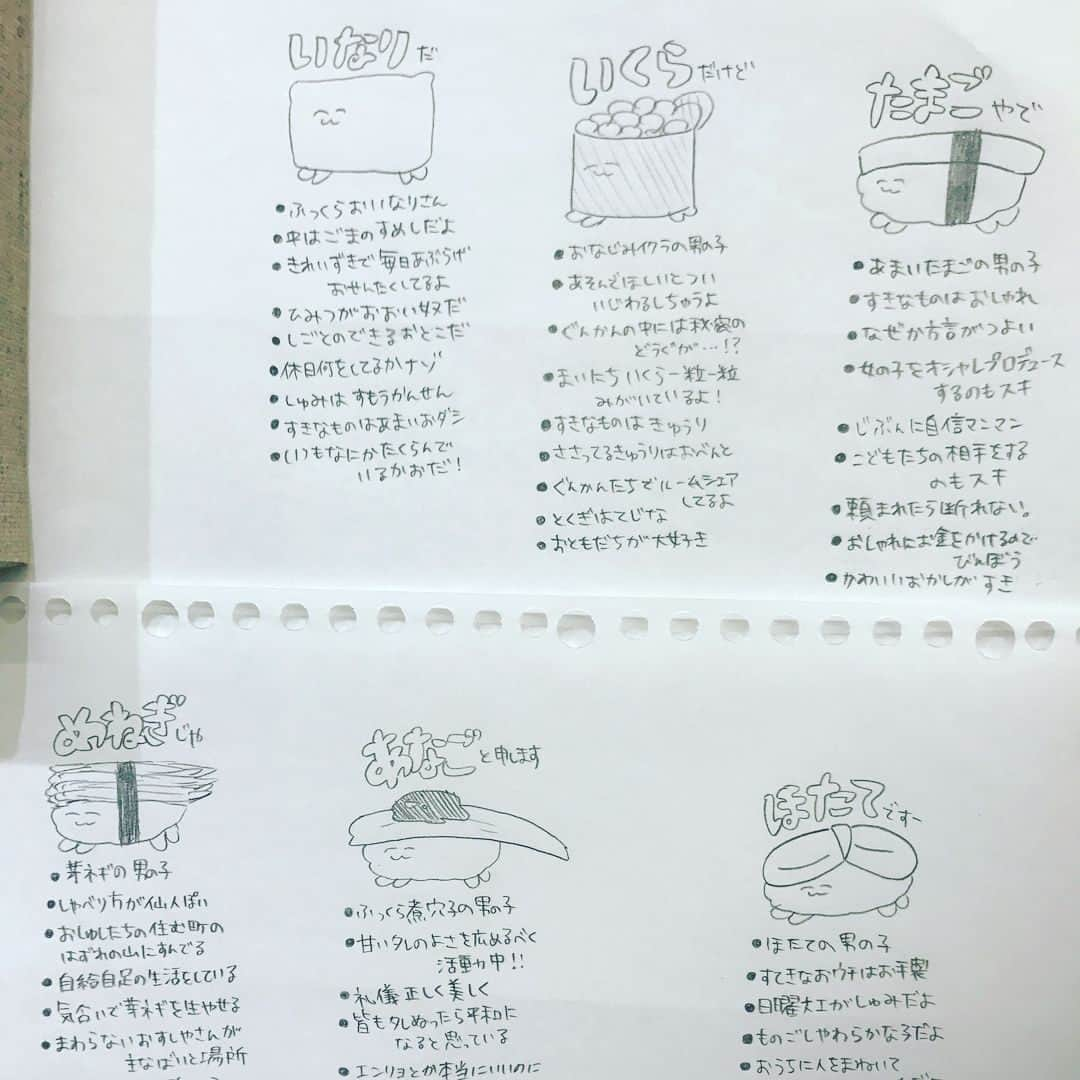 いなりだ
●ふっくらおいなりさん
●中はごまのすめしだよ
●きれいずきで毎日あぶらげ
おせんたくしてるよ
●ひみつがおおい奴だ
●しごとのできるおとこだ
●休日何をしてるかナゾ
●しゅみはすもうかんせん
●すきなものはあまいおダシ
●いつもなにかたくらんで
いるかおだ!
いくらだけど
●おなじみイクラの男の子
●あそんでほしいとつい
いじわるしちゃうよ
●ぐんかんの中には秘密の
どうぐが…!?
●まいにちいくら一粒一粒
みがいているよ!
●すきなものはきゅうり
●ささってるきゅうりはおべんと
●ぐんかんたちでルームシェア
してるよ
●とくぎはてじな
●おともだちが大好き
たまごやで
●あまいたまごの男の子
●すきなものはおしゃれ
●なぜか方言がつよい
●女の子をオシャレプロデュース
するのもスキ
●じぶんに自信マンマン
●こどもたちの相手をする
のもスキ
●頼まれたら断れない。
●おしゃれにお金をかけるので
びんぼう
●かわいいおかしがすき
めねぎじゃ
●芽ネギの男の子
●しゃべり方が仙人ぽい
●おしゅしたちの住む町の
はずれの山にすんでる
●自給自足の生活をしている
●気合いで芽ネギを生やせる
●まわらないおすしやさんが
主なばいと場所
あなごと申します
●ふっくら煮穴子の男の子
●甘いタレのよさを広めるべく
活動中!!
●礼儀正しく美しく
●皆もタレぬったら平和に
なると思っている
●エンリョとか本当にいいのに
ほたてですー
●ほたての男の子
●すてきなおウチはお手製
●日曜大工がしゅみだよ
●ものごしやわらかな子だよ
●おうちに人をまねいて